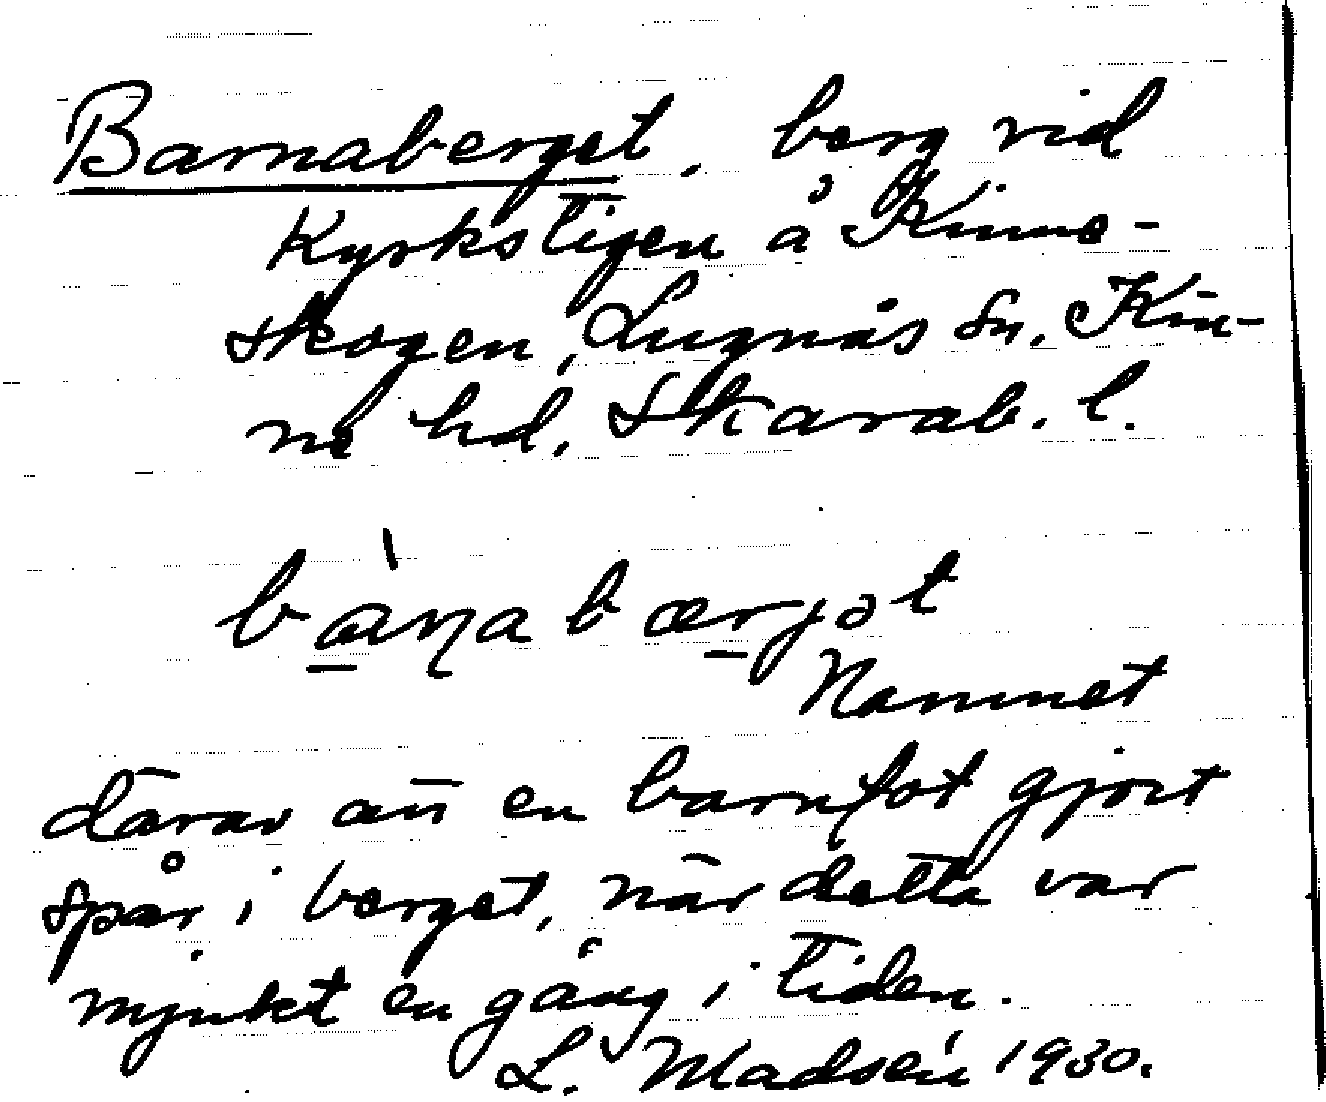 Barnaberget, berg vid
Kyrkstigen å Kinne-
skogen, Lugnås sn, Kin-
ne hd, Skarab. l.
bàṉabærjət
Namnet
därav att en barnfot gjort
spår i berget, när detta var
mjukt en gång i tiden.
L. Madsén 1930.